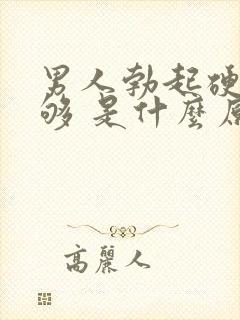 男人勃起硬
够 是什麼
高麗人